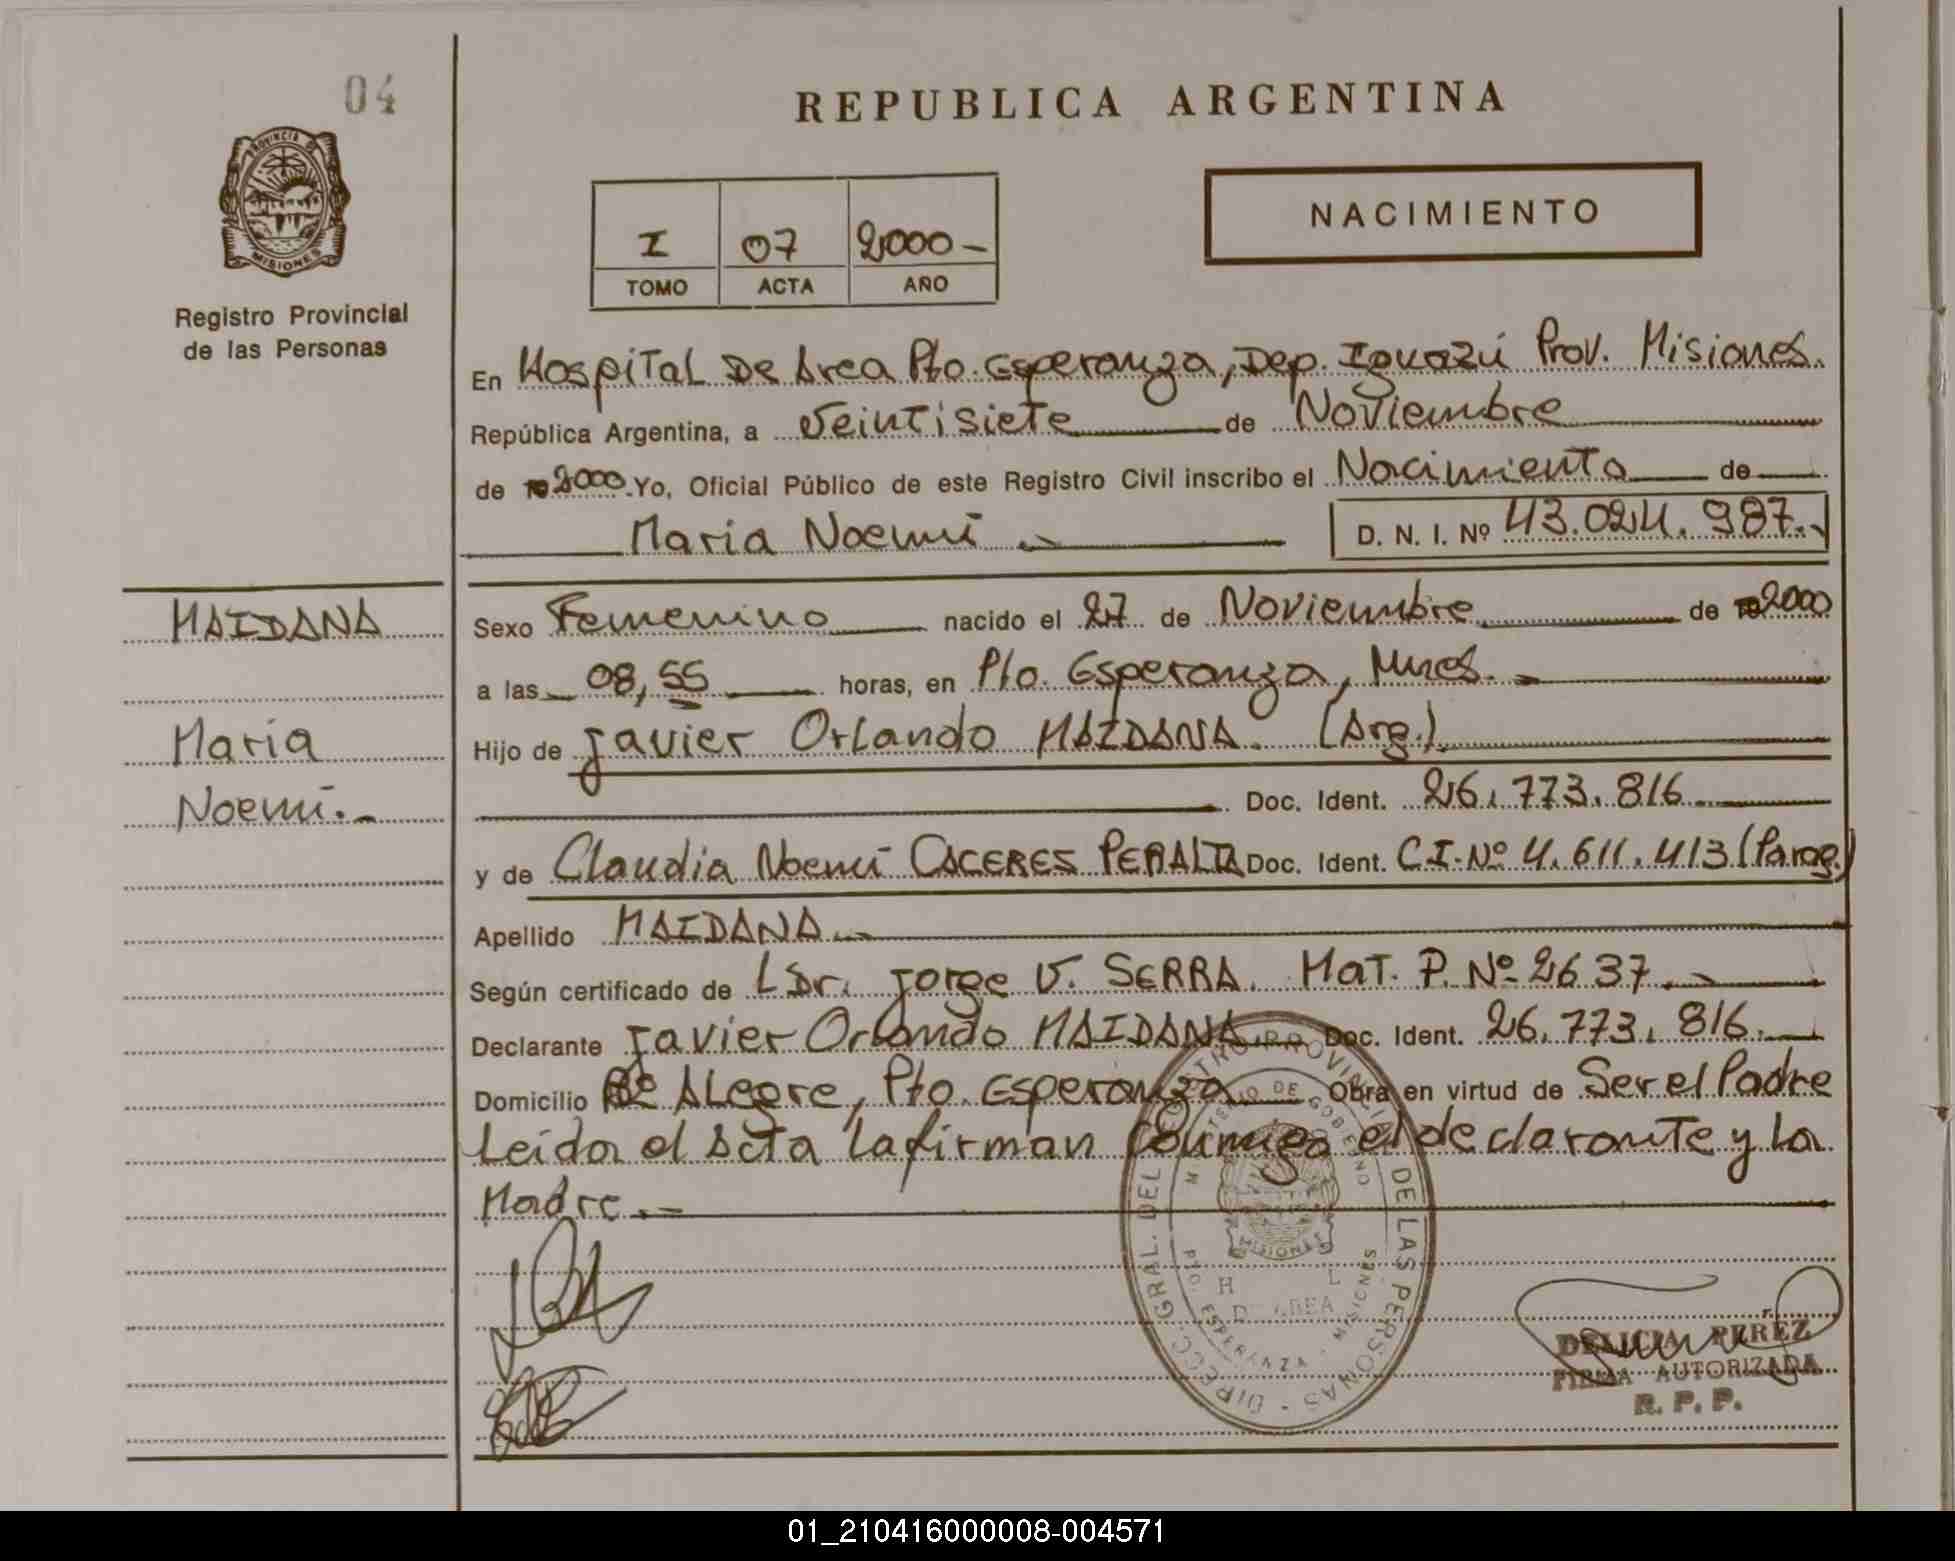 04
REPUBLICA ARGENTINA
PROVINCIA DE
MISIONES
Registro Provincial
de las Personas
NACIMIENTO
I 07 2000-
TOMO ACTA AÑO
En Hospital De Area Pto. Esperanza, Dep. Iguazú Prov. Misiones.
República Argentina, a Veintisiete de Noviembre
de 2000 Yo, Oficial Público de este Registro Civil inscribo el Nacimiento de
Maria Noemí D. N. I. Nº 43.024.987.
MAIDANA
Maria
Noemí.-
Sexo Femenino nacido el 27 de Noviembre de 2000
a las 08,55 horas, en Pto. Esperanza, Mnes.
Hijo de Javier Orlando MAIDANA. (Arg.)
Doc. Ident. 26.773.816
y de Claudia Noemí CACERES PERALTA Doc. Ident. C.I. Nº 4.611.413 (Parag.)
Apellido MAIDANA.-
Según certificado de Dr. Jorge V. SERRA. Mat. P. Nº 2637.
Declarante Javier Orlando MAIDANA.- Doc. Ident. 26.773.816.
Domicilio Bº Alegre, Pto. Esperanza Obra en virtud de Ser el Padre
Leida el Acta la firman Conmigo el declarante y La
Madre.-
DIRECC. GRAL. DEL REGISTRO PROVINCIAL DE LAS PERSONAS
MINISTERIO DE GOBIERNO
MISIONES
DE AREA
PTO. ESPERANZA - MISIONES
DELICIA PEREZ
FIRMA AUTORIZADA
R. P. P.
01_210416000008-004571